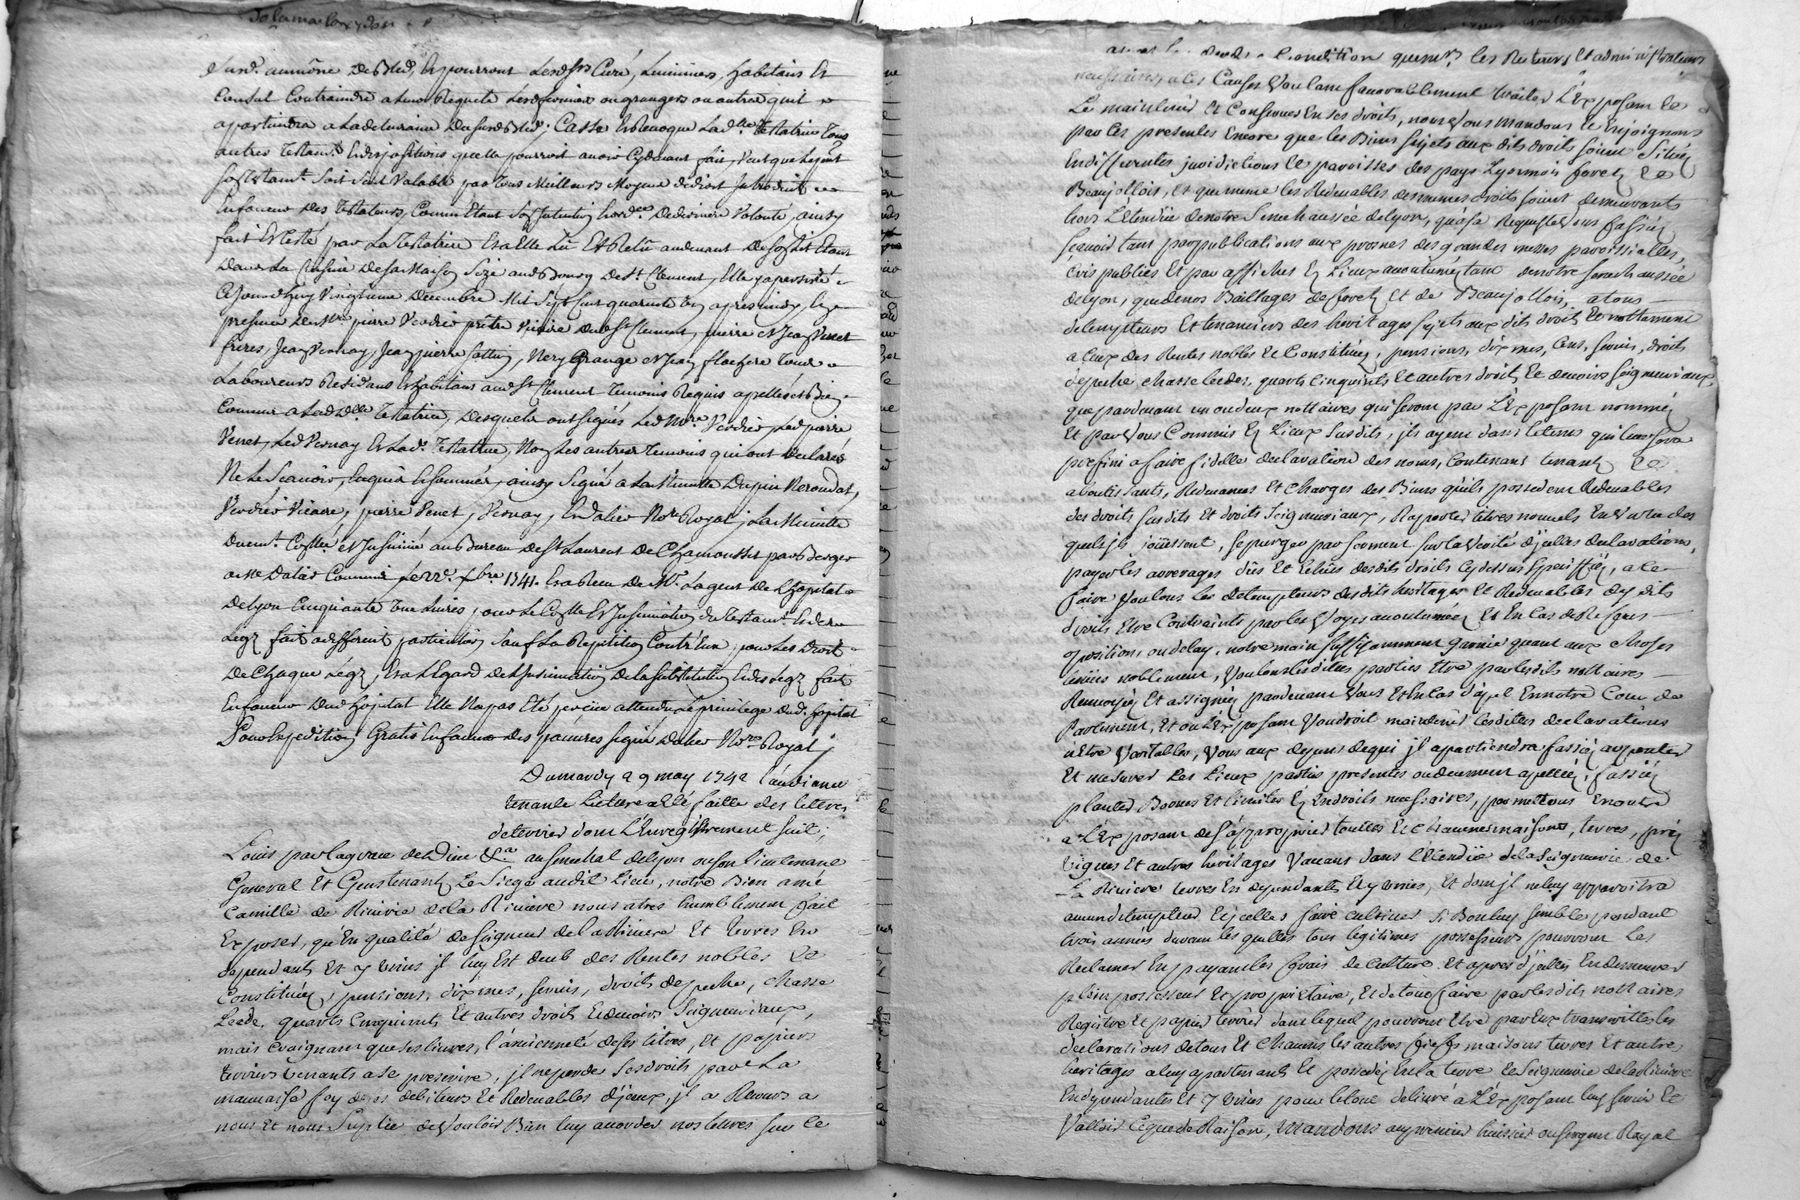 Susd. aumône de bled, Et pourront lesdsrs Curé, Luminiers, habitans Et
Consul Contraindre a leur Requete Les fermiers ou grangers ou autre quil
apartiendra a la delivraine dudit bled; Casse Et Revoque lad.lle Testatrice Tous
autres Testamts. Et dispositions quelle pourroit avoir Cydevant fait, Veut que le pnt
soit Valable par Tous Meilleurs Moyens de droit Introduit
En faveur des Testateurs, Comme Etant Son Intention de derniere Volonté, ainsy
fait Et Testé par La Testatrice Et a Elle Lu Et Relu
dans La Cuisine de sa Maison Size aud Bourg de St. Clement, Elle y a persisté
Cejourdhuy Vingt une Decembre Mil Sept Cent quarante Un apres midy, En
presence de Mre pierre Verdier prêtre Vicaire dud St Clement, pierre et Jean Venet
freres, Jean Vernay, Jean pierre Grange et Jean flachere Tous
Laboureurs Residans Et habitans aud St Clement Temoins Requis apellés
Comme a lad.lle Testatrice, Desquels ont signés Led Mre Verdier, Led pierre
Venet, Led Vernay Et Lad. Testatrice, Non Les autres Temoins qui ont declarés
Ne Le Scavoir, Enquis Et sommés, ainsy Signé a La Minutte Dupin Neronday,
Verdier Vicaire, pierre Venet, Vernay, Et Dalier Nore Royal, La Minutte
duemt. Collée et Insinuée au Bureau de St Laurent De Chamousset par Berger
Commis 1741. Et a Receu De Mr. Lagent De L'hopital
de Lyon Cinquante Trois Livres, pour Le Controlle Et Insinuation du Testamt. Et de
Legz fait a differents particuliers Sauf La Repetition Contre Eux, pour Les Droits
De Chaque Legz, Et a L'Egard de Linsinuation De la Substitution Et des Legz fait
En faveur Dud hopital Elle Na pas Eté perçüe attendu le privilege dud. hopital
Pour Expedition Gratis En faveur des pauvres signé Dalier Nore Royal
Du mardy 29 may 1742 l'audience
tenante Lecture a Eté faitte des lettres
de terrier dont L'Enregistrement suit;
Louis par la grace de Dieu &a. au senechal de Lyon ou son lieutenant
General Et Gens tenants Le Siege audit Lieu, notre Bien amé
Camille de Riverie de la Riviere nous a tres humblement fait
Exposer, qu'En qualité de seigneur de la Riviere Et terres En
dependants Et y unies il luy Est deub des Rentes nobles Et
Constituées, pensions, dixmes, servis, droits de peche, chasse
Leede, quarts Cinquients Et autres droits Et devoirs Seigneuriaux,
mais Craignant que ses livres, l'ancienneté de ses titres, Et papiers
terriers venants a se prescrire, il ne perde Ses droits par La
mauvaise foy de ses debiteurs Et Redevables d'iceux, il a Recours a
nous Et nous Suplie de Vouloir Bien luy accorder nos lettres sur Ce
condition que Mrs. les Recteurs Et administrateurs
necessaires a ces Causes Voulant favorablement traiter L'Exposant Et
Le maintenir Et Conserver En ses droits, nous Vous mandons Et Enjoignons
par Ces presentes Encore que les Biens sujets aux dits droits soient Situés
En differentes juridictions Et paroisses des pays Lyonnois forest Et
Beaujollois, Et que meme les Redevables desmemes droits soient demeurants
hors L'étendüe de notre Senechaussée de lyon, qu'a sa Requeste Vous fassiés
scavoir tant par publications aux prosnes des grandes messes paroissialles,
Cris publics Et par affiches Es Lieux accoutumés tant de notre Senechaussée
de lyon, que de nos Bailliages de forest Et de Beaujollois, a tous
detempteurs Et tenanciers des heritages sujets aux dits droits Et nottament
a Ceux des Rentes nobles Et Constituées, pensions, dixmes, Cens, servis, droits
de peche, chasse leedes, quarts Cinquients Et autres droits Et devoirs seigneuriaux,
que pardevant un ou deux nottaires qui seront par L'Exposant nommés
Et par Vous Commis Es Lieux Susdits, ils ayent dans le tems qui leur sera
prefini a faire fidelle declaration des noms, Contenans tenants Et
aboutissants, Redevances Et Charges des Biens qu'ils possedent Redevables
des droits susdits Et droits Seigneuriaux, Raporter titres nouvels En vertu des
quels ils joüissent, se purger par serment sur la Verité d'icelles declarations,
payer les arrerages dûs Et Echûs desdits droits Cydessus specifiés, a ce
faire Voulons Les detempteurs desdits heritages Et Redevables desdits
droits Etre Contraints par les Voyes accoutumées, Et En Cas de Refus
opposition, ou delay, notre main suffisamment garnie quant aux choses
tenües noblement, Voulons lesdites parties Etre par lesdits nottaires
Renvoyées Et assignées pardevant Vous Et En Cas d'apel En notre Cour de
Parlement, Et ou L'Exposant Voudroit maintenir lesdites declarations
n'Etre Veritables, Vous aux depens de qui il apartiendra fassiés arpenter
Et mesurer Les Lieux parties presentes ou deuement apellées, fassiés
planter Bornes Et limites Es Endroits necessaires, permettons En outre
a L'Exposant de s'approprier touttes Et chacunes maisons, terres, prés
vignes Et autres heritages Vacans dans L'Etendüe de la Seigneurie de
La Riviere terres En dependants Et y unies, Et dont il ne luy apparoitra
aucun detempteur Et icelles faire cultiver Si Bon luy semble pendant
trois années durant les quelles tous legitimes possesseurs pourront Les
Reclamer En payant les frais de Culture Et apres d'icelles En demeurer
plein possesseur Et proprietaire, Et de tout faire par lesdits nottaires
Registre Et papier terrier dans lequel pourront Etre par Eux transcrittes les
declarations de tous Et chacuns les autres fiefs maisons terres Et autres
heritages a luy apartenants Et possedés En la terre Et Seigneurie de la Riviere
En dependantes Et y unies pour le tout delivré a L'Exposant luy servir Et
Valloir Ce que de Raison, Mandons au premier huissier ou sergent Royal